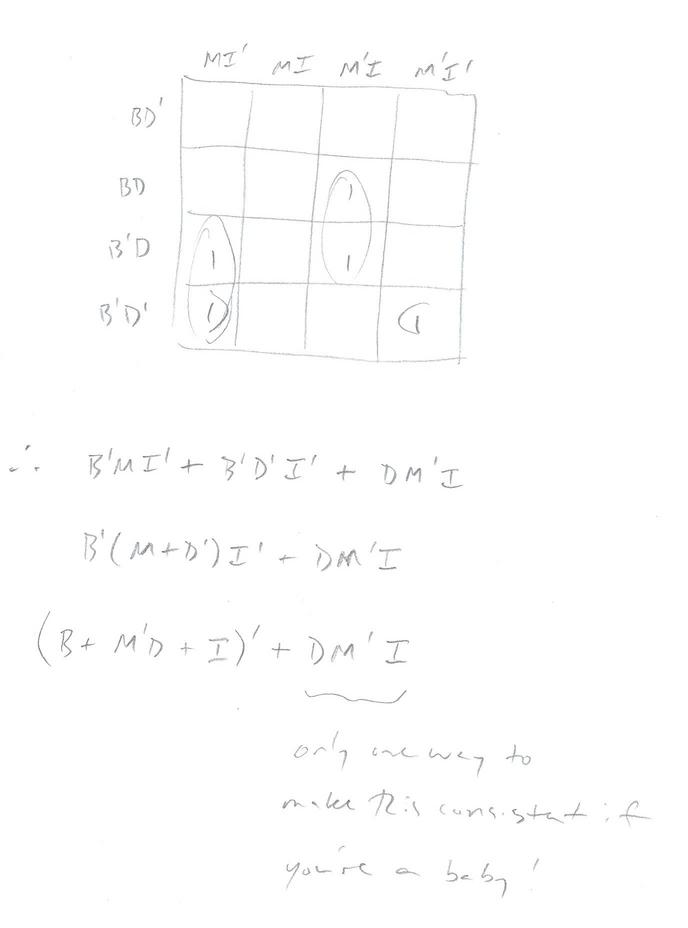 MI' MI M'I M'I'
BD'
BD 1
B'D 1 1
B'D' 1 1
∴ B'MI' + B'D'I' + DM'I
B'(M+D')I' + DM'I
(B + M'D + I)' + DM'I
only one way to
make this consistent if
you're a baby!